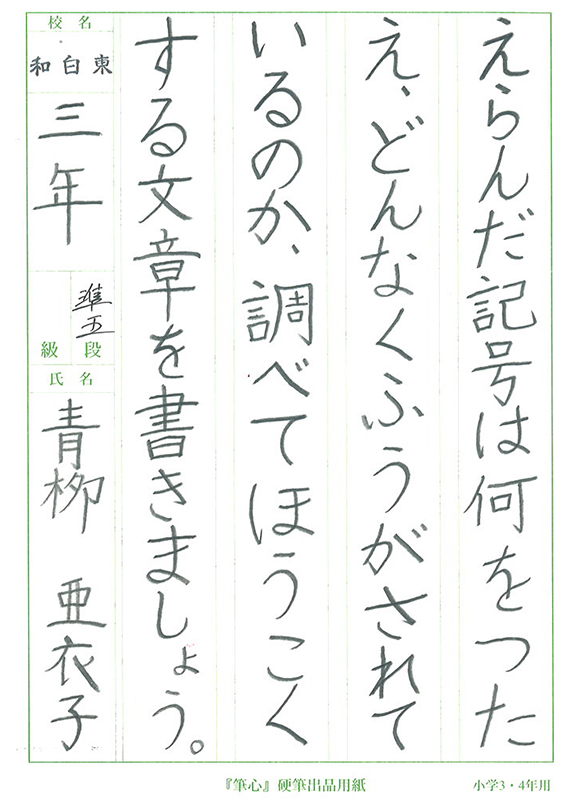 えらんだ記号は何をつた
え、どんなくふうがされて
いるのか、調べてほうこく
する文章を書きましょう。
校名
東白和
三年
段
級
準五
氏名
青柳 亜衣子
『筆心』硬筆出品用紙
小学3・4年用